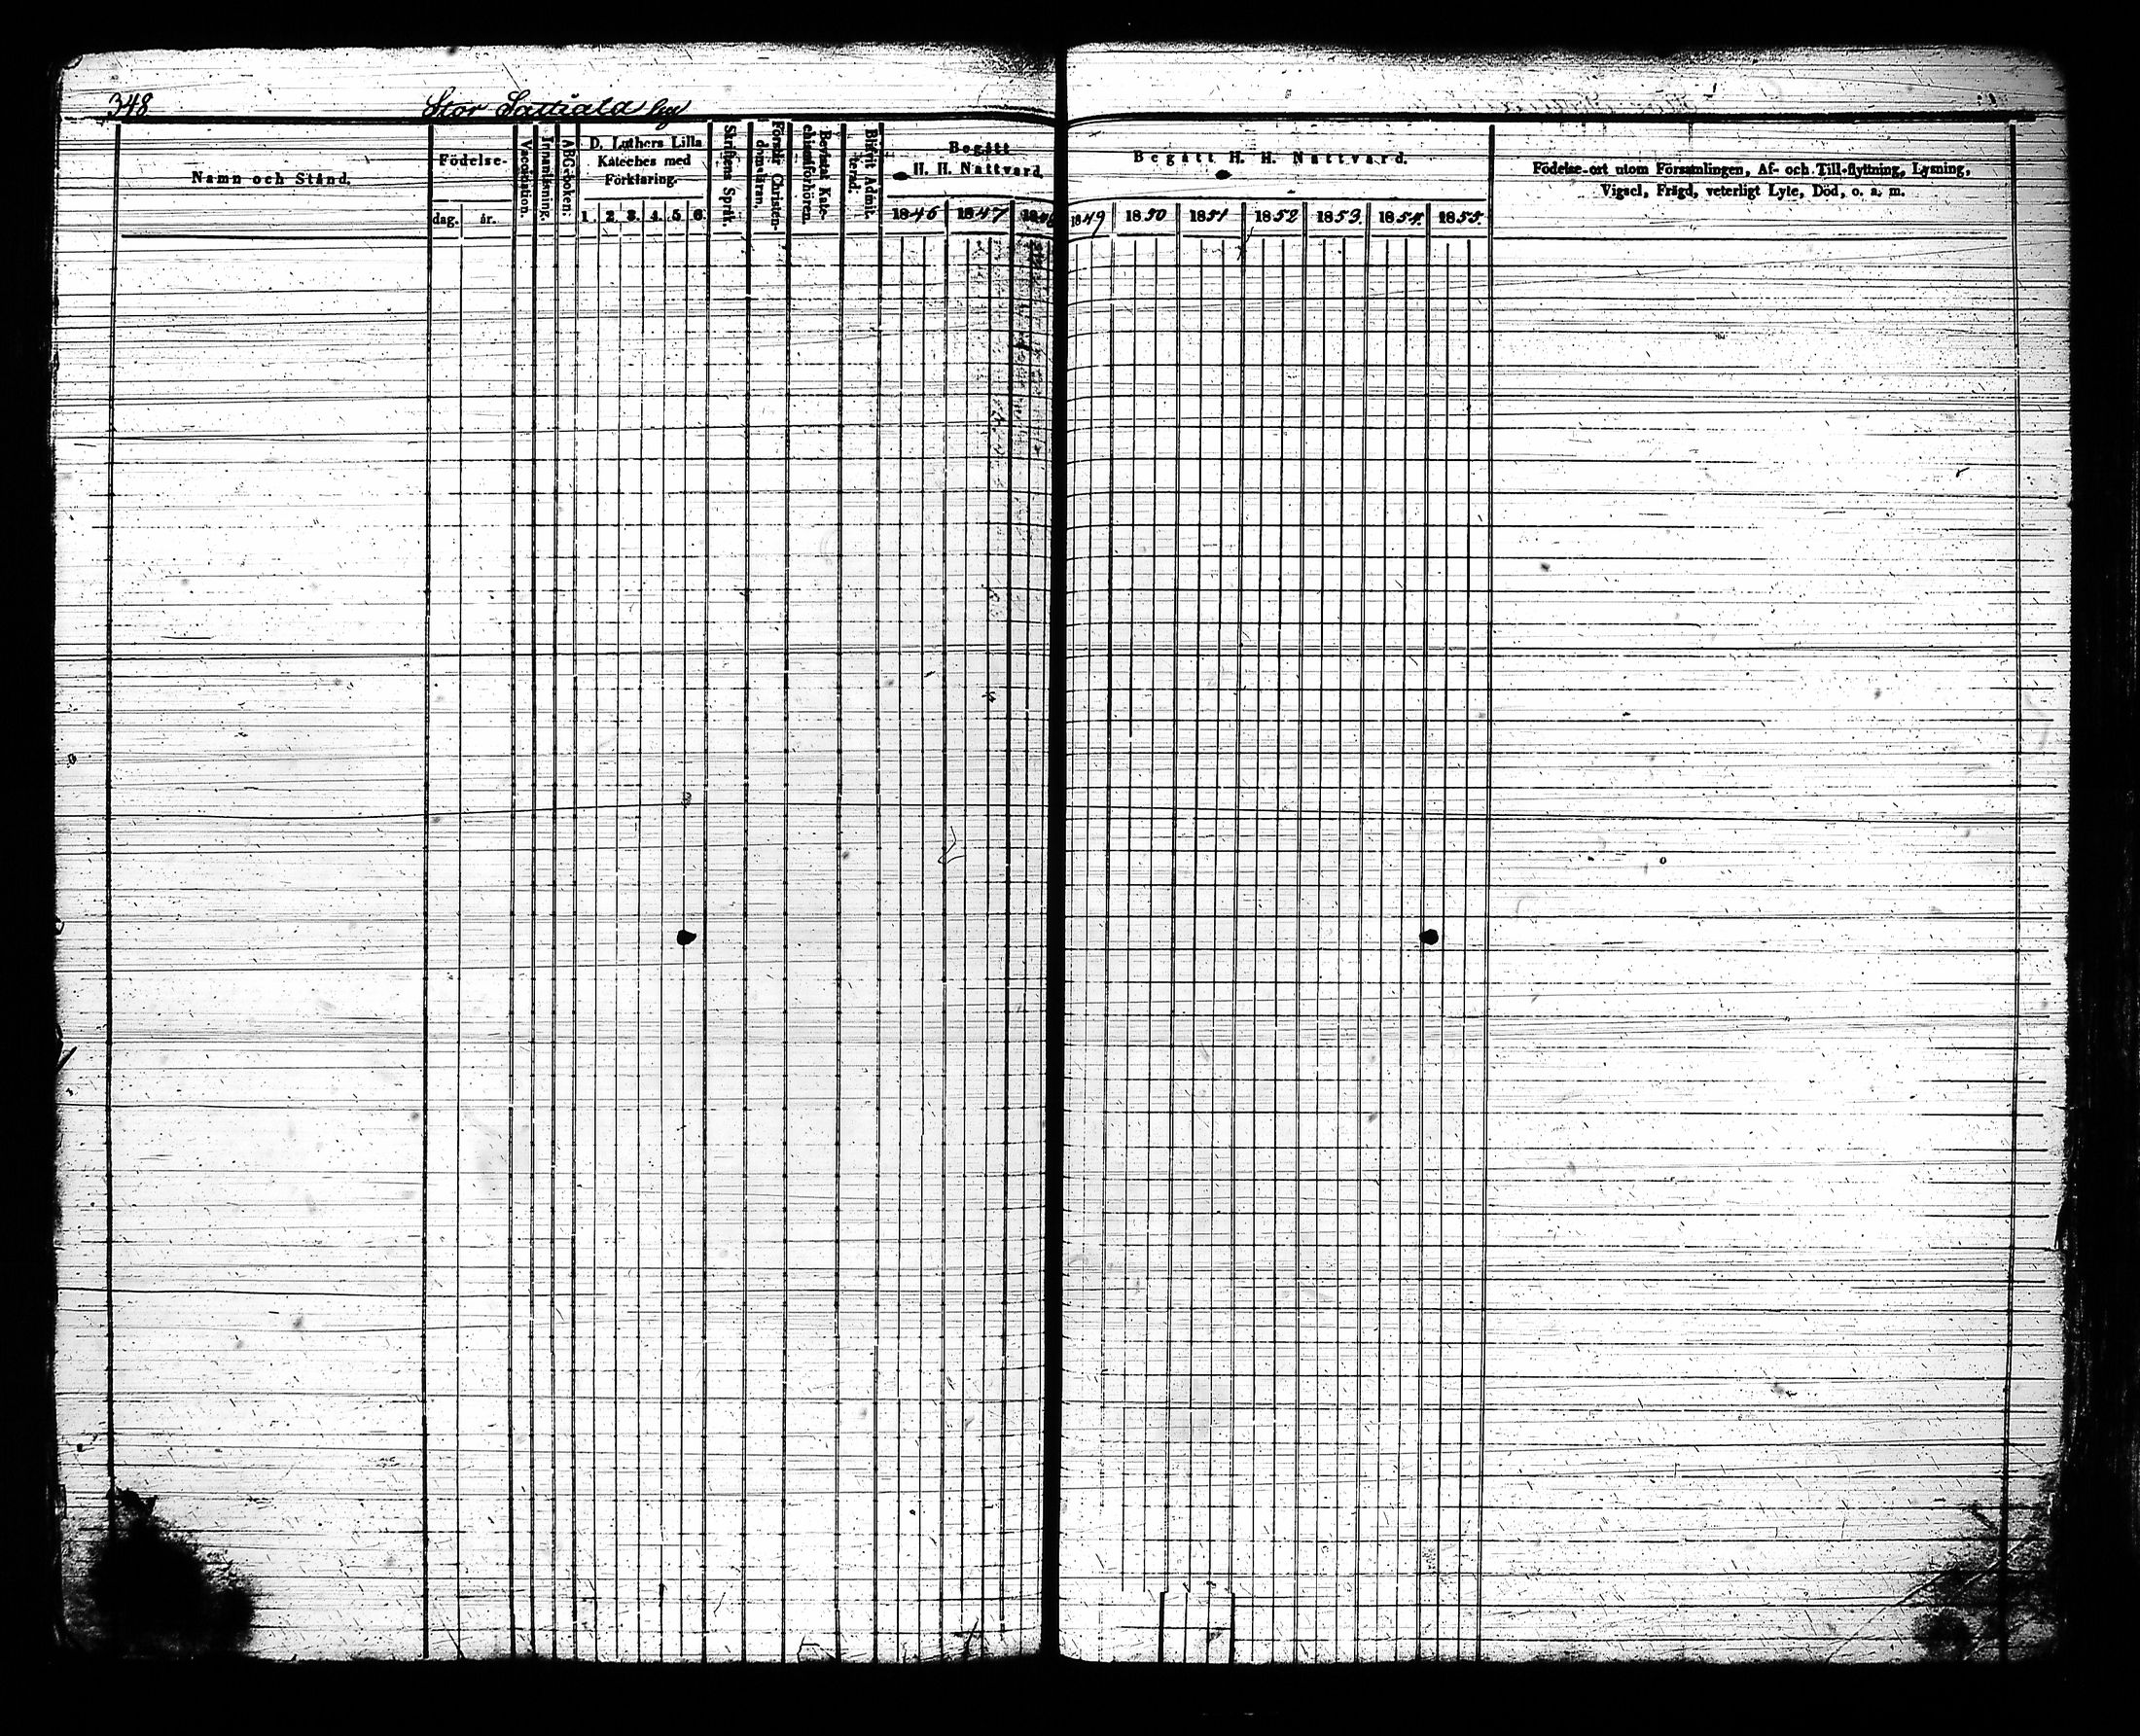 348 Stor Sattiala by
Namn och Stånd.
Födelse-
dag. år.
Vaccination.
Innanläsning.
ABC-boken:
D. Luthers Lilla
Kateches med
Förklaring.
1. 2. 3. 4. 5. 6.
Skriftens Språk.
Förstår Christen-
domsläran.
Bevistat Kate-
chismiförhören.
Blifvit Admit-
terad.
Begått
H. H. Nattvard.
1846 1847 1848
Begått H. H. Nattvard.
1849 1850 1851 1852 1853 1854. 1855.
Födelse-ort utom Församlingen, Af- och Till-flyttning, Lysning,
Vigsel, Frägd, veterligt Lyte, Död, o. a. m.